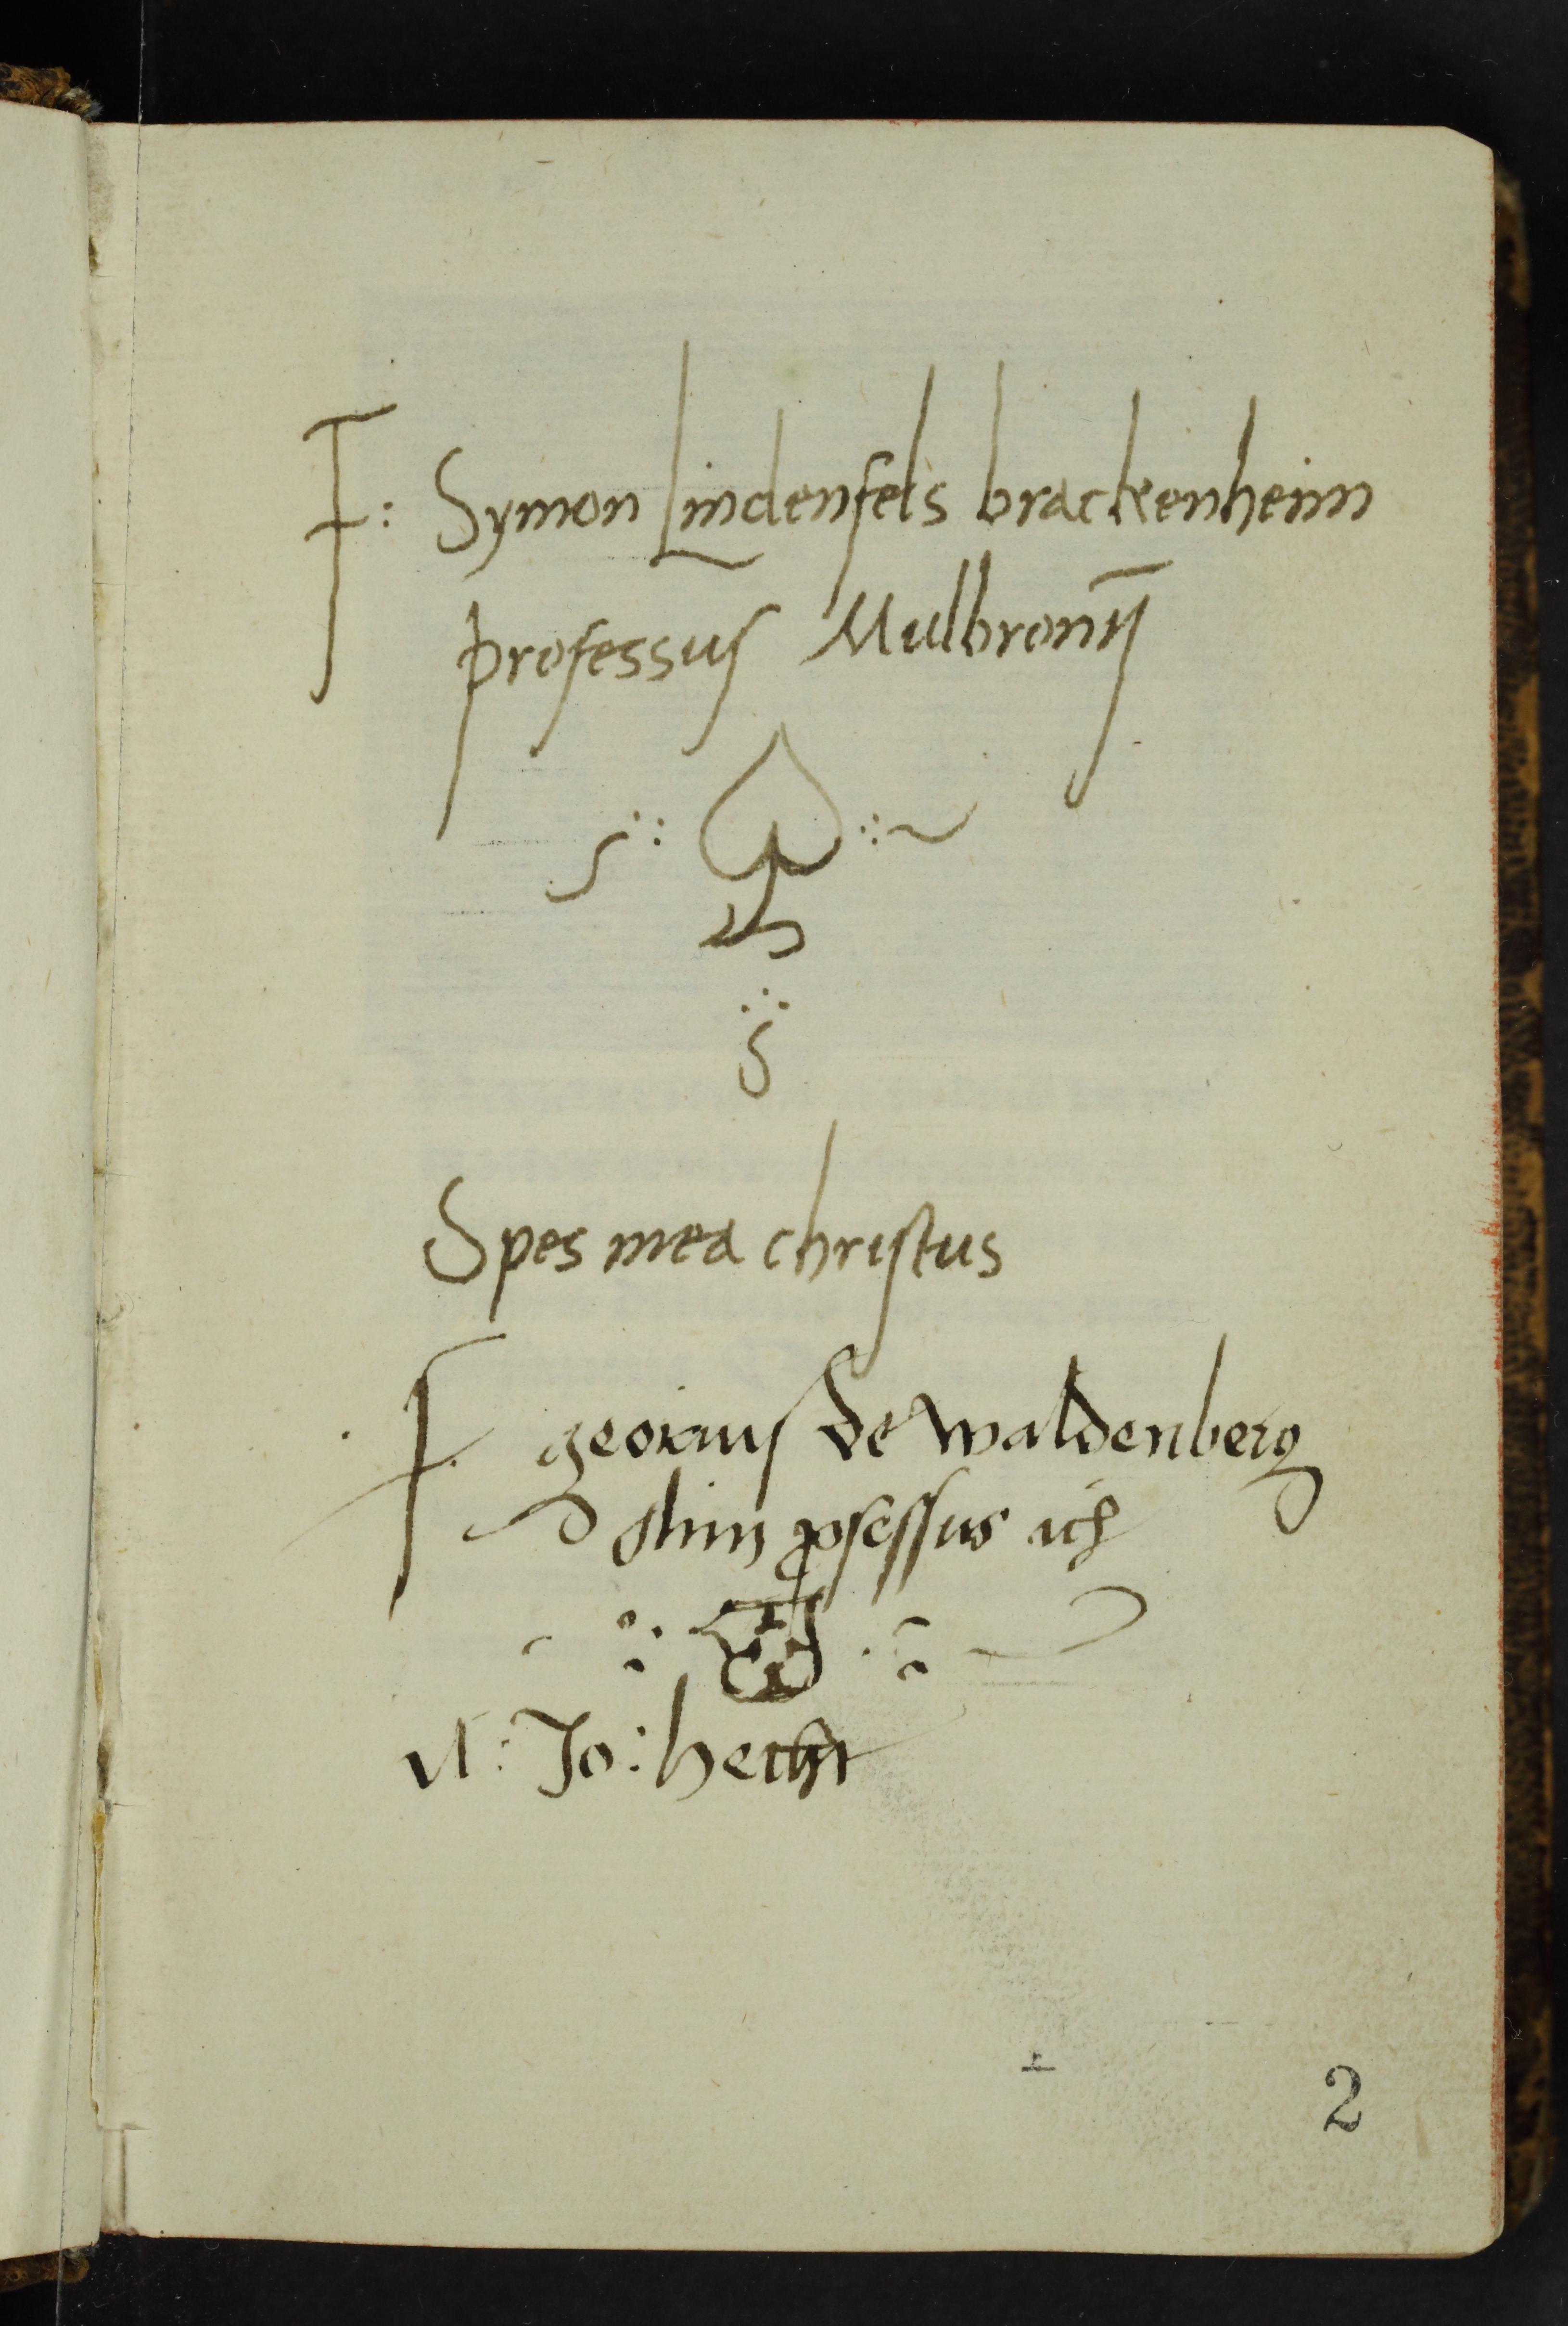 F: Symon Lindenfels brackenheim
professus Mulbronn
Spes mea christus
F. georius de waldenberg
olim professus
M: Jo: hecht
2